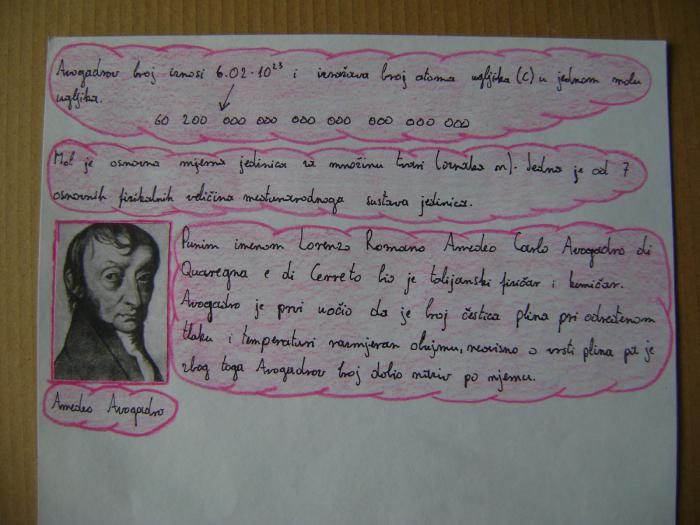 Avogadrov broj iznosi 6.02·10²³ i izražava broj atoma ugljika (C) u jednom molu
ugljika.
60 200 000 000 000 000 000 000 000
Mol je osnovna mjerna jedinica za množinu tvari (oznaka n). Jedna je od 7
osnovnih fizikalnih veličina međunarodnoga sustava jedinica.
Punim imenom Lorenzo Romano Amedeo Carlo Avogadro di
Quaregna e di Cerreto bio je talijanski fizičar i kemičar.
Avogadro je prvi uočio da je broj čestica plina pri određenom
tlaku i temperaturi razmjeran obujmu, neovisno o vrsti plina pa je
zbog toga Avogadrov broj dobio naziv po njemu.
Amedeo Avogadro